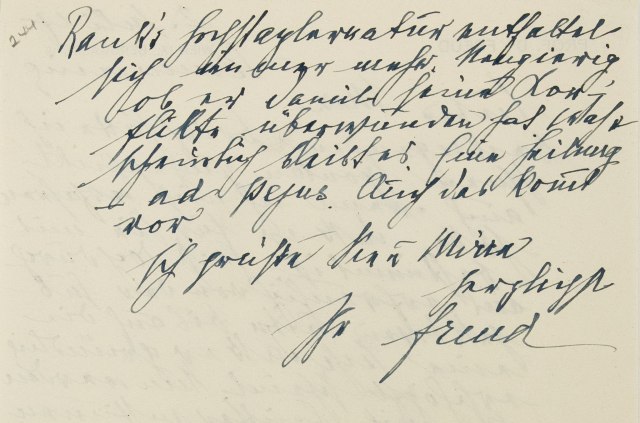 244.
Rank's Hochstaplernatur entfaltet
sich immer mehr. Neugierig
ob er damit seine Kon-
flikte überwunden hat. Wahr
scheinlich bleibt es eine Heilung
ad pejus. Auch das kommt
vor
Ich grüße Sie u Mirra
herzlichst
Ihr Freud